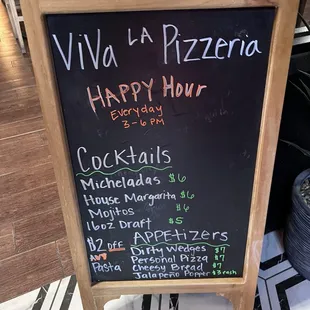 ViVa LA Pizzeria
HAPPY Hour
Everyday
3-6 PM
Cocktails
Micheladas $6
House Margarita $6
Mojitos $6
16oz Draft $5
APPETIZERS
Dirty Wedges $7
Personal Pizza $7
Cheesy Bread $7
Jalapeño Popper $3 each
$2 off
ANY
Pasta